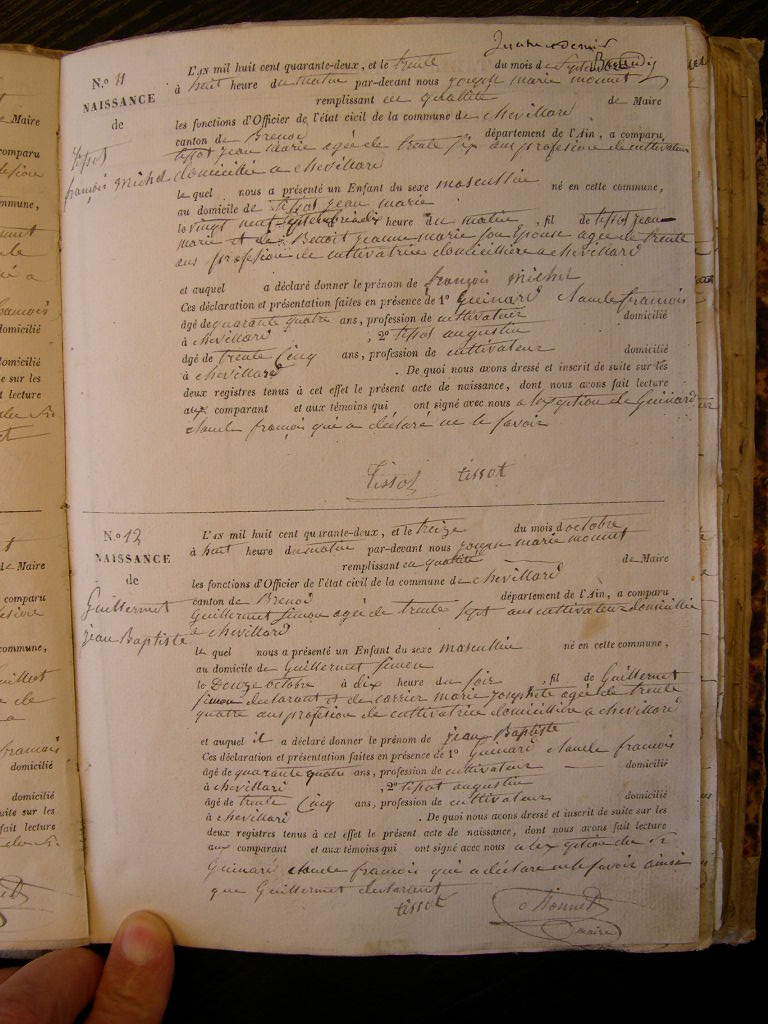 N.o 11
NAISSANCE
de
tissot
françois michel
L'AN mil huit cent quarante-deux, et le trente du mois de Septembre
à huit heure du matin par-devant nous joseph marie monnet
remplissant en qualité de Maire
les fonctions d'Officier de l'état civil de la commune de chevillard
canton de Brenod département de l'Ain, a comparu
tissot jean marie agée de trente six ans profession de cultivateur
domicilié a chevillard
le quel nous a présenté un Enfant du sexe masculin né en cette commune,
au domicile de tissot jean marie
le vingt neuf septembre à dix heure du matin, fil de tissot jean
marie et de Benoit jeanne marie son Epouse agée de trente
ans profession de cultivatrice domicillière a chevillard
et auquel a déclaré donner le prénom de françois michel
Ces déclaration et présentation faites en présence de 1o Guinard claude francois
âgé de quarante quatre ans, profession de cultivateur domicilié
à chevillard, 2o tissot augustin
âgé de trente cinq ans, profession de cultivateur domicilié
à chevillard. De quoi nous avons dressé et inscrit de suite sur les
deux registres tenus à cet effet le présent acte de naissance, dont nous avons fait lecture
aux comparant et aux témoins qui ont signé avec nous a lexeption de Guinard
claude françois qui a déclaré ne le savoir
Tissot tissot
N.o 12
NAISSANCE
de
Guillermet
jean Baptiste
L'AN mil huit cent quarante-deux, et le treize du mois d'octobre
à huit heure du matin par-devant nous joseph marie monnet
remplissant en qualité de Maire
les fonctions d'Officier de l'état civil de la commune de chevillard
canton de Brenod département de l'Ain, a comparu
Guillermet simon agé de trente sept ans cultivateur domicillié
a chevillard
le quel nous a présenté un Enfant du sexe masculin né en cette commune,
au domicile de Guillermet simon
le Douze octobre à dix heure du soir, fil de Guillermet
simon declarant et de carrier marie josephte agée de trente
quatre ans profesion de cultivatrice domicillière a chevillard
et auquel il a déclaré donner le prénom de jean Baptiste
Ces déclaration et présentation faites en présence de 1o Guinard claude francois
âgé de quarante quatre ans, profession de cultivateur domicilié
à chevillard, 2o tissot augustin
âgé de trente cinq ans, profession de cultivateur domicilié
à chevillard. De quoi nous avons dressé et inscrit de suite sur les
deux registres tenus à cet effet le présent acte de naissance, dont nous avons fait lecture
aux comparant et aux témoins qui ont signé avec nous a lexeption de
Guinard claude francois qui a déclaré ne le savoir ainsi
que Guillermet declarant
tissot Monnet
maire